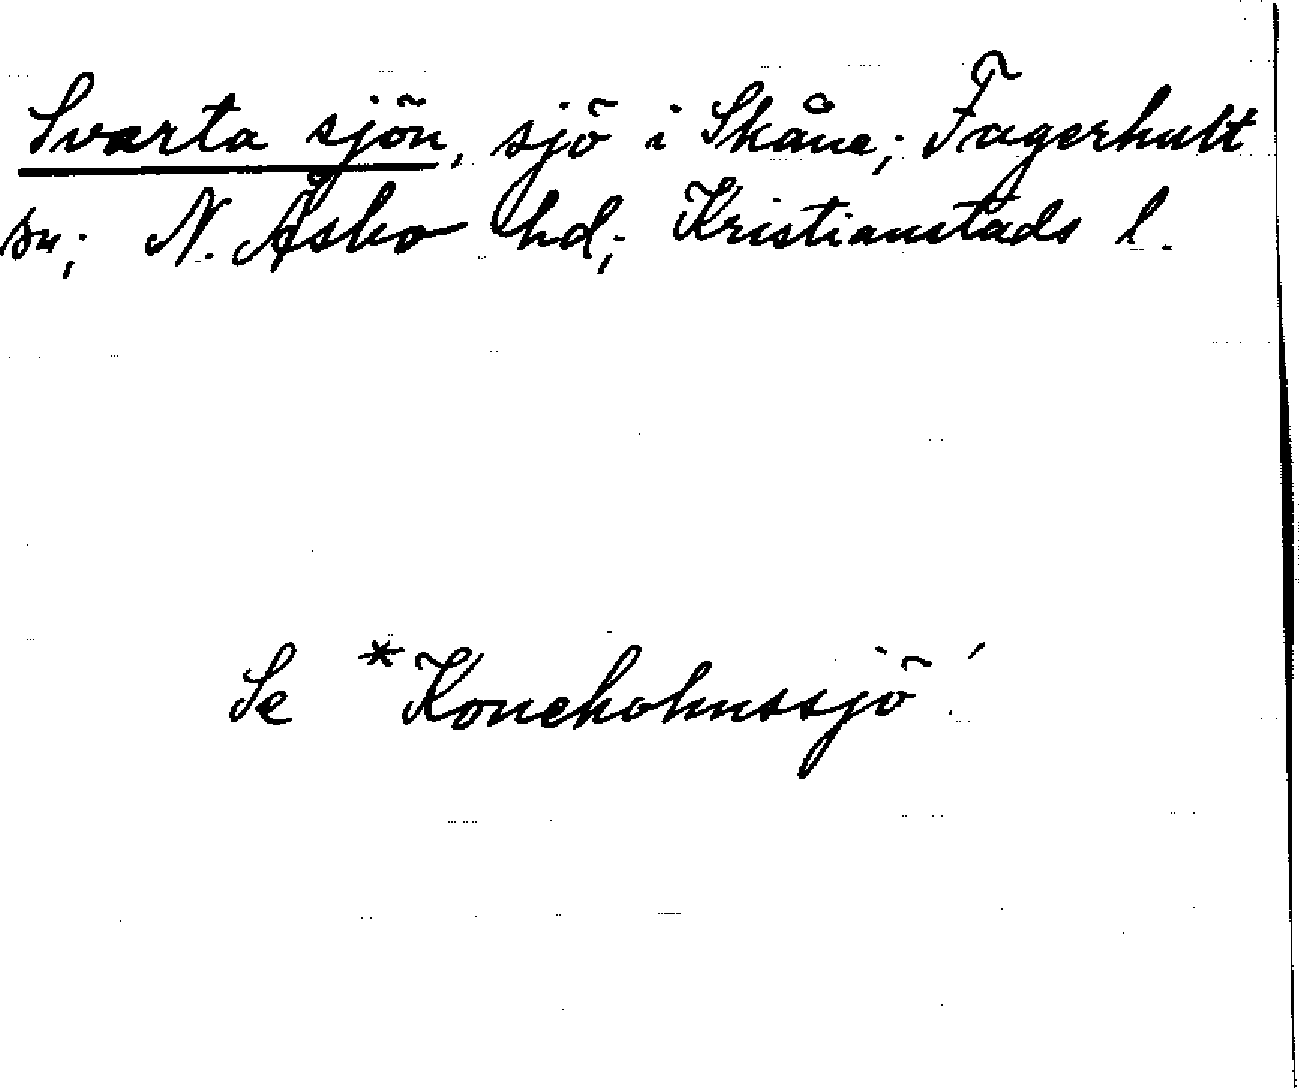 Svarta sjön, sjö i Skåne; Fagerhult
sn; N. Åsbo hd; Kristianstads l.
Se *Koneholmssjö